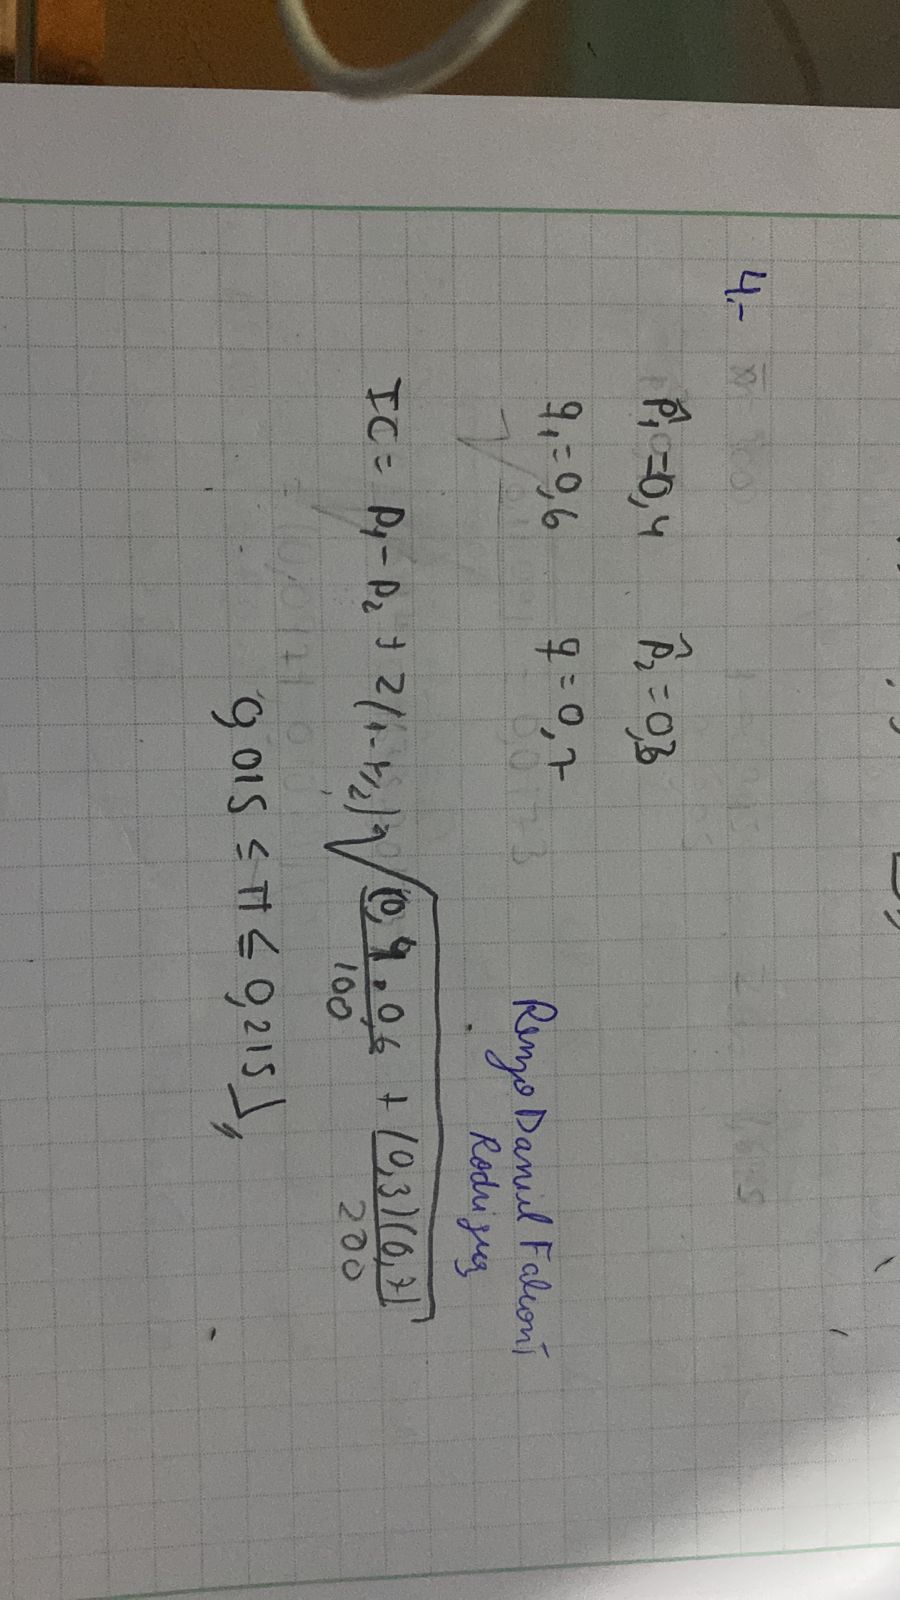 4.-
p̂₁=0,4 p̂₂=0,3
q₁=0,6 q=0,7
Renzo Daniel Falconi
Rodriguez
IC= p₁-p₂ + z(1-α/2) √(0,4.0,6 / 100 + (0,3)(0,7) / 200)
0,015 ≤ π ≤ 0,215]